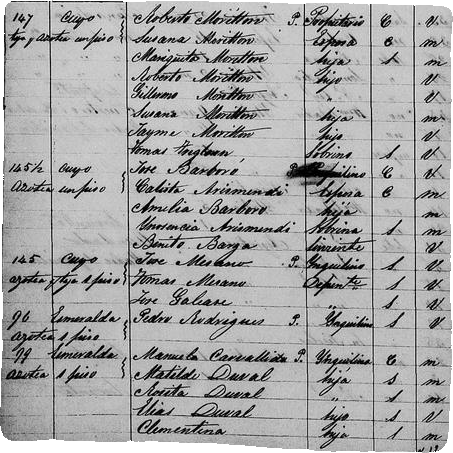 147 Cuyo Roberto Moritton P. Propietario C V
teja y azotea un piso Susana Moritton Esposa C m
Mariquita Moritton hija s m
Roberto Moritton hijo V
Guillermo Moritton " V
Susana Moritton hija m
Jayme Moritton hijo V
Tomas Sobrino s V
145½ Cuyo Jose Barboró P. Ynquilino C V
Azotea un piso Calista Arismendi Esposa C m
Amelia Barboro hija m
Arismendi Sobrina s m
Benito Barga sirviente V
145 Cuyo Jose Merano P. Ynquilino s V
azotea y teja 1 piso Tomas Merano Depente s V
Jose Galease " s V
96 Esmeralda Pedro Rodrigues P. Ynquilino s V
azotea 1 piso
99 Esmeralda Manuela P. Ynquilina C m
Azotea 1 piso Matilde Duval hija s m
Rosita Duval " s m
Elias Duval hijo s V
Clementina hija s m